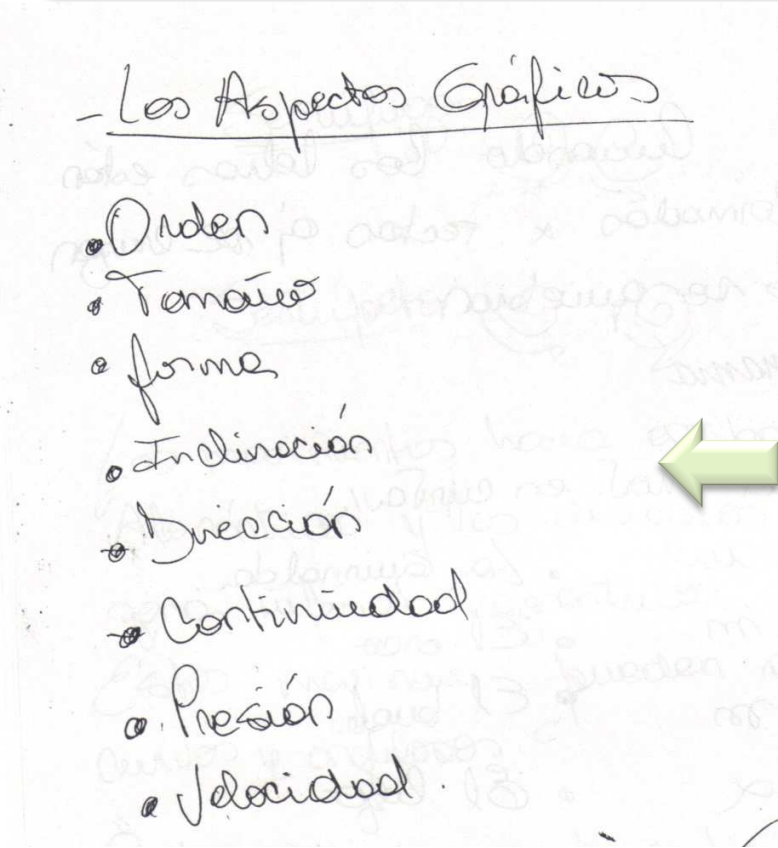 - Los Aspectos Gráficos
• Orden
• Tamaño
• forma
• Inclinación
• Dirección
• Continuidad
• Presión
• Velocidad.